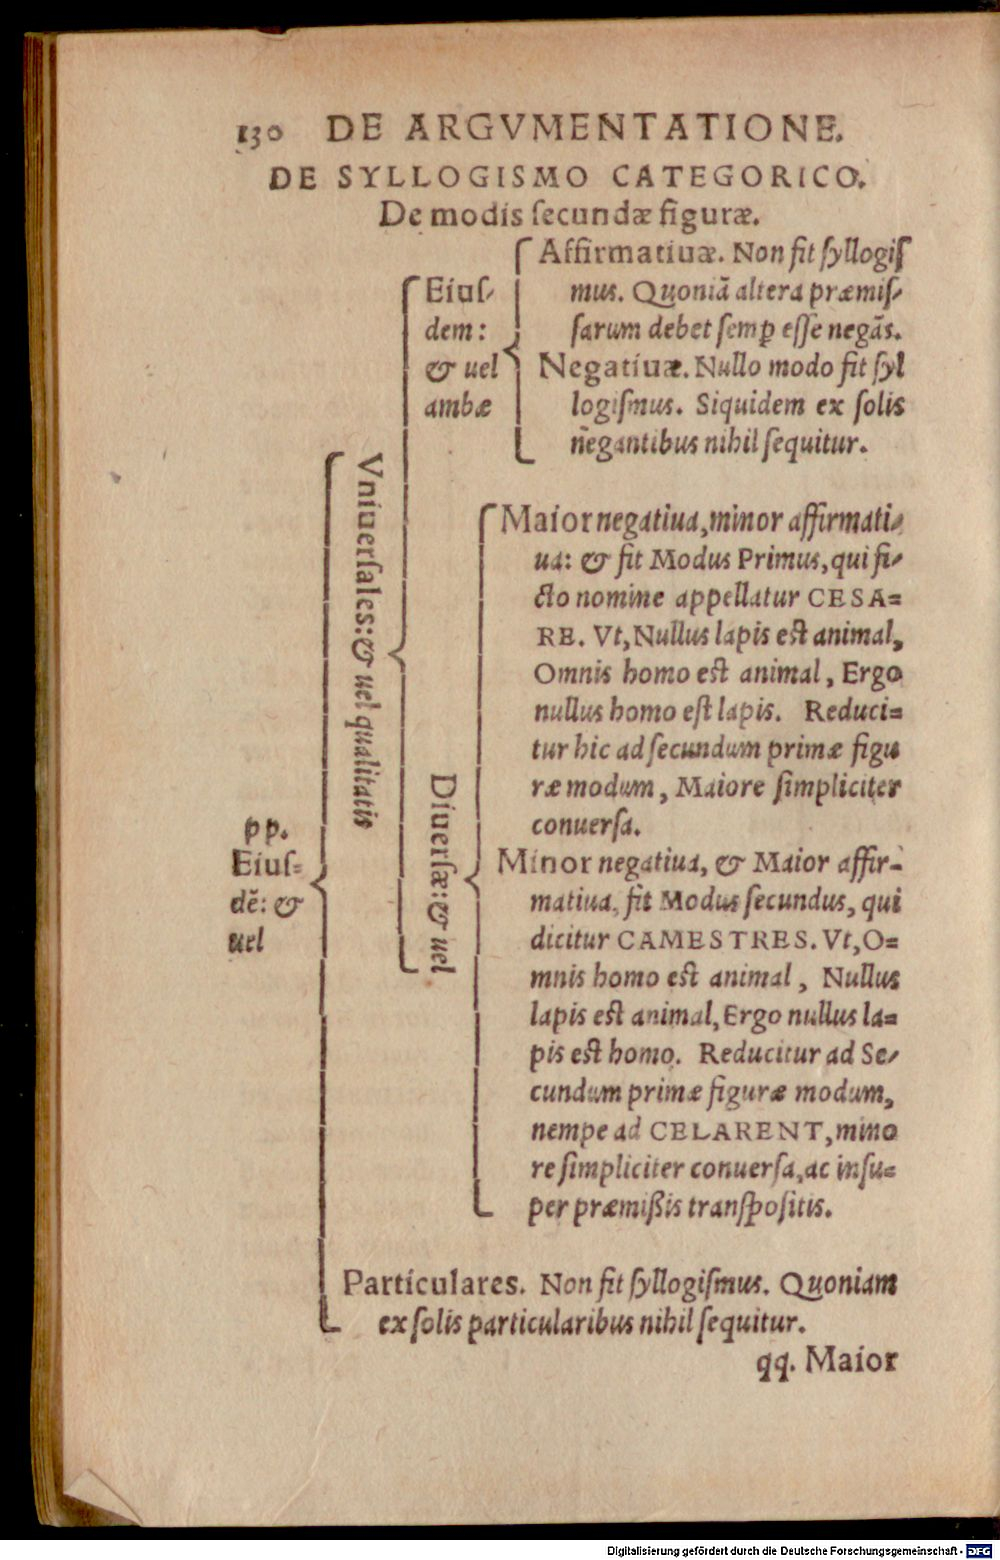 130 DE ARGVMENTATIONE.
DE SYLLOGISMO CATEGORICO.
De modis ſecundæ figuræ.
pp.
Eiuſ-
dẽ: &
uel
Vniuerſales: & uel qualitatis
Eiuſ-
dem:
& uel
ambæ
Affirmatiuæ. Non fit ſyllogiſ
mus. Quoniã altera præmiſ-
ſarum debet ſemꝑ eſſe negãs.
Negatiuæ. Nullo modo fit ſyl
logiſmus. Siquidem ex ſolis
negantibus nihil ſequitur.
Diuerſæ: & uel
Maior negatiua, minor affirmati-
ua: & fit Modus Primus, qui fi-
cto nomine appellatur CESA=
RE. Vt, Nullus lapis est animal,
Omnis homo est animal, Ergo
nullus homo eſt lapis. Reduci=
tur hic ad ſecundum primæ figu
ræ modum, Maiore ſimpliciter
conuerſa.
Minor negatiua, & Maior affir-
matiua, fit Modus ſecundus, qui
dicitur CAMESTRES. Vt, O=
mnis homo est animal, Nullus
lapis est animal, Ergo nullus la=
pis est homo. Reducitur ad Se-
cundum primæ figuræ modum,
nempe ad CELARENT, mino
re ſimpliciter conuerſa, ac inſu=
per præmißis tranſpoſitis.
Particulares. Non fit ſyllogiſmus. Quoniam
ex ſolis particularibus nihil ſequitur.
qq. Maior
Digitalisierung gefördert durch die Deutsche Forschungsgemeinschaft - DFG